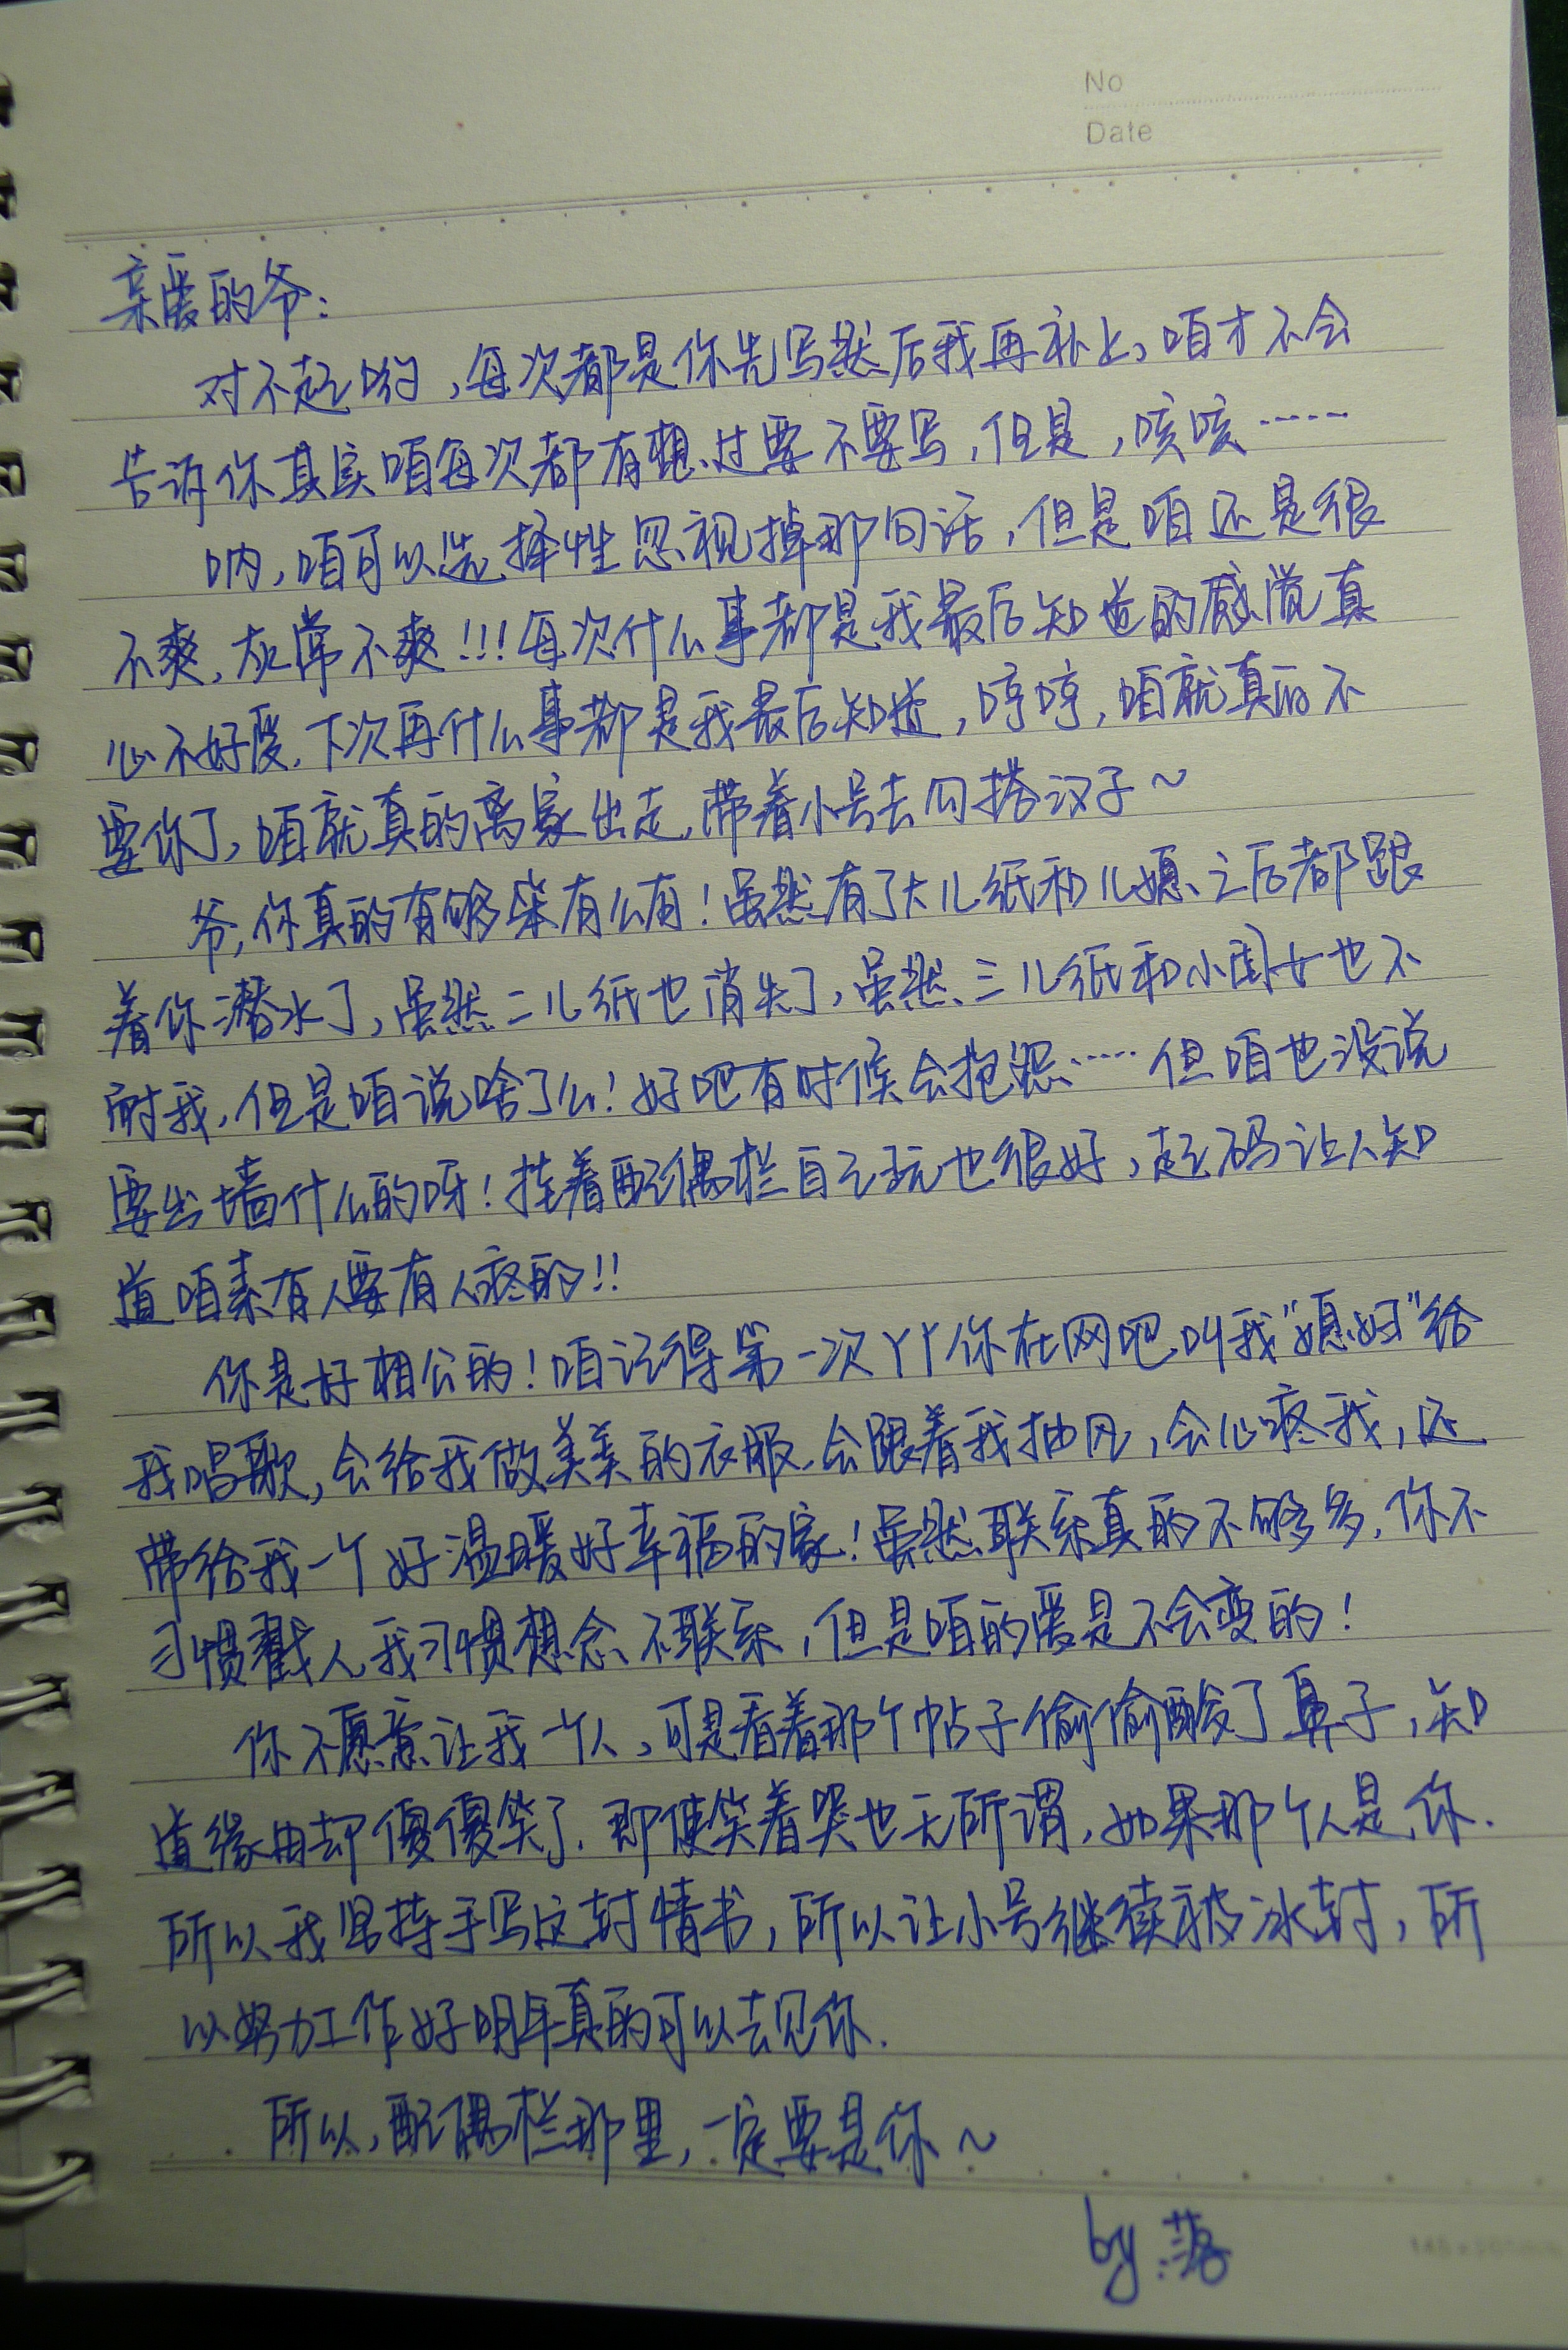 No
Date
亲爱的爷：
对不起哟，每次都是你先写然后我再补上，咱才不会
告诉你其实咱每次都有想过要不要写，但是，咳咳……
呐，咱可以选择性忽视掉那句话，但是咱还是很
不爽，灰常不爽！!!每次什么事都是我最后知道的感觉真
心不好受，下次再什么事都是我最后知道，哼哼，咱就真的不
要你了，咱就真的离家出走，带着小号去勾搭汉子～
爷，你真的有够笨有么有！虽然有了大儿纸和儿媳之后都跟
着你潜水了，虽然二儿纸也消失了，虽然三儿纸和小闺女也不
耐我，但是咱说啥了么！好吧有时候会抱怨……但咱也没说
要出墙什么的呀！挂着配偶栏自己玩也很好，起码让人知
道咱素有人要有人疼的!!
你是好相公的！咱记得第一次YY你在网吧叫我“媳妇”给
我唱歌，会给我做美美的衣服，会跟着我抽风，会心疼我，还
带给我一个好温暖好幸福的家！虽然联系真的不够多，你不
习惯戳人我习惯想念不联系，但是咱的爱是不会变的！
你不愿意让我一个人，可是看着那个帖子偷偷酸了鼻子，知
道缘由却傻傻笑了．即使笑着哭也无所谓，如果那个人是你．
所以我坚持手写这封情书，所以让小号继续被冰封，所
以努力工作好明年真的可以去见你．
所以，配偶栏那里，一定要是你～
by:落